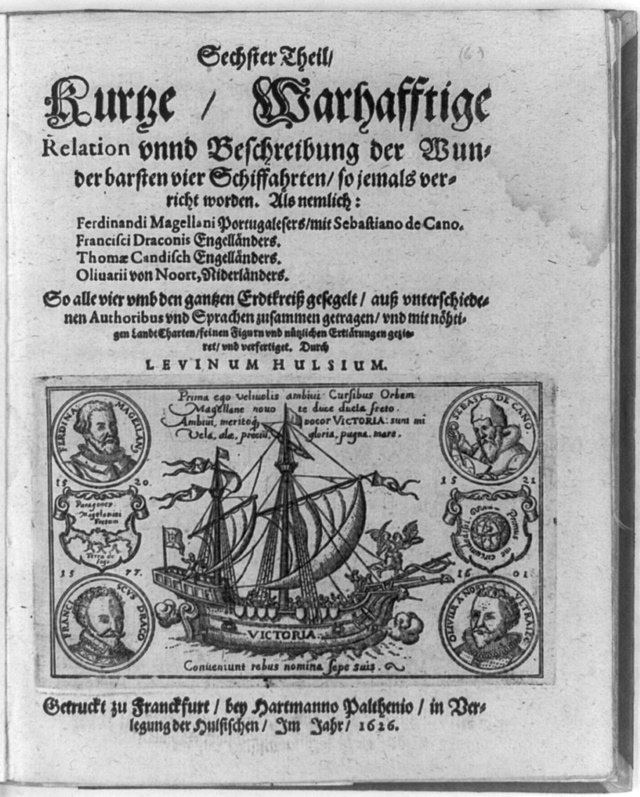 (6)
Sechster Theil/
Kurtze / Warhafftige
Relation vnnd Beschreibung der Wun-
der barsten vier Schiffahrten/ so jemals ver-
richt worden. Als nemlich:
Ferdinandi Magellani Portugalesers/ mit Sebastiano de Cano.
Francisci Draconis Engelländers.
Thomæ Candisch Engelländers.
Oliuarii von Noort, Niderländers.
So alle vier vmb den gantzen Erdtkreiß gesegelt / auß vnterschiede-
nen Authoribus vnd Sprachen zusammen getragen / vnd mit nöhti-
gen Landt Charten/ feinen Figurn vnd nützlichen Erklärungen gezie-
ret/ vnd verfertiget. Durch
LEVINUM HULSIUM.
Prima ego veliuolis ambiui Cursibus Orbem
Magellane nouo te duce ducta freto.
Ambiui, meritoq; vocor VICTORIA: sunt mi
Vela, alæ, preciu, gloria, pugna, mare.
FERDINA MAGELLANUS
SEBAST. DE CANO.
1520.
1521
Magellanici
Fretum
Terra de
fogo
Primus me circumdedisti
1577.
1601
FRANCISCUS DRACO
OLIVIER
VICTORIA.
Conueniunt rebus nomina sepe suis.
Getruckt zu Franckfurt / bey Hartmanno Palthenio / in Ver-
legung der Hulsischen / Im Jahr / 1626.